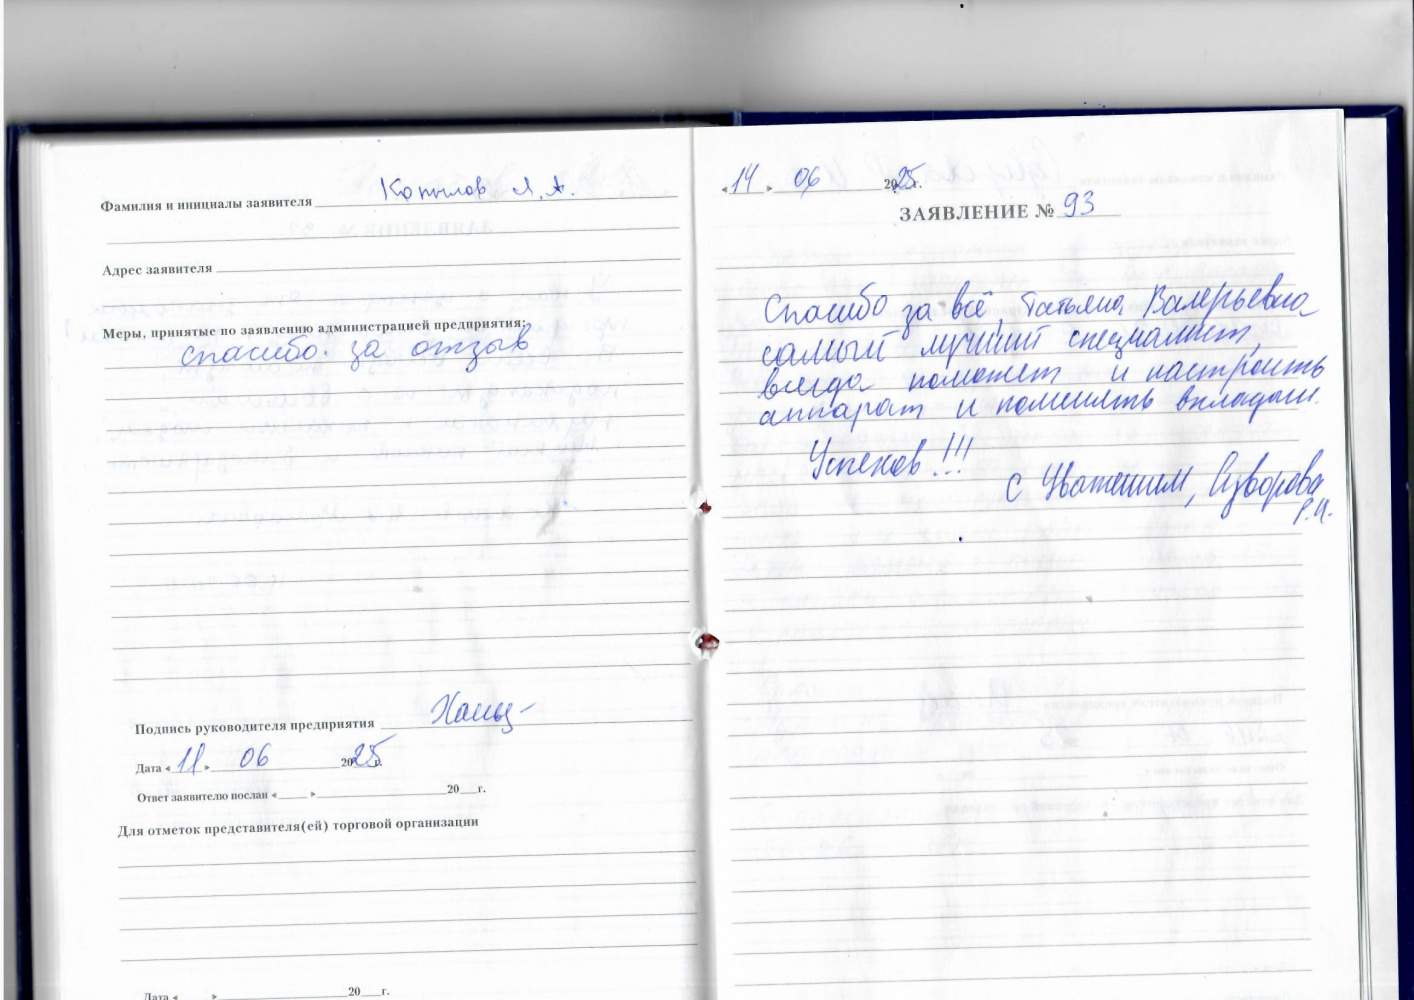 Фамилия и инициалы заявителя Копылов Л. А.
Адрес заявителя
Меры, принятые по заявлению администрацией предприятия:
спасибо за отзыв
Подпись руководителя предприятия
Дата «11» 06 2025г.
Ответ заявителю послан «____» ____ 20__г.
Для отметок представителя(ей) торговой организации
Дата «____» ____ 20__г.
«14» 06 2025г.
ЗАЯВЛЕНИЕ № 93
Спасибо за всё, Татьяна Валерьевна
самый лучший специалист,
всегда поможет и настроить
аппарат и поменять вкладыш.
Успехов!!!
с Уважением, Суворова
Р.И.